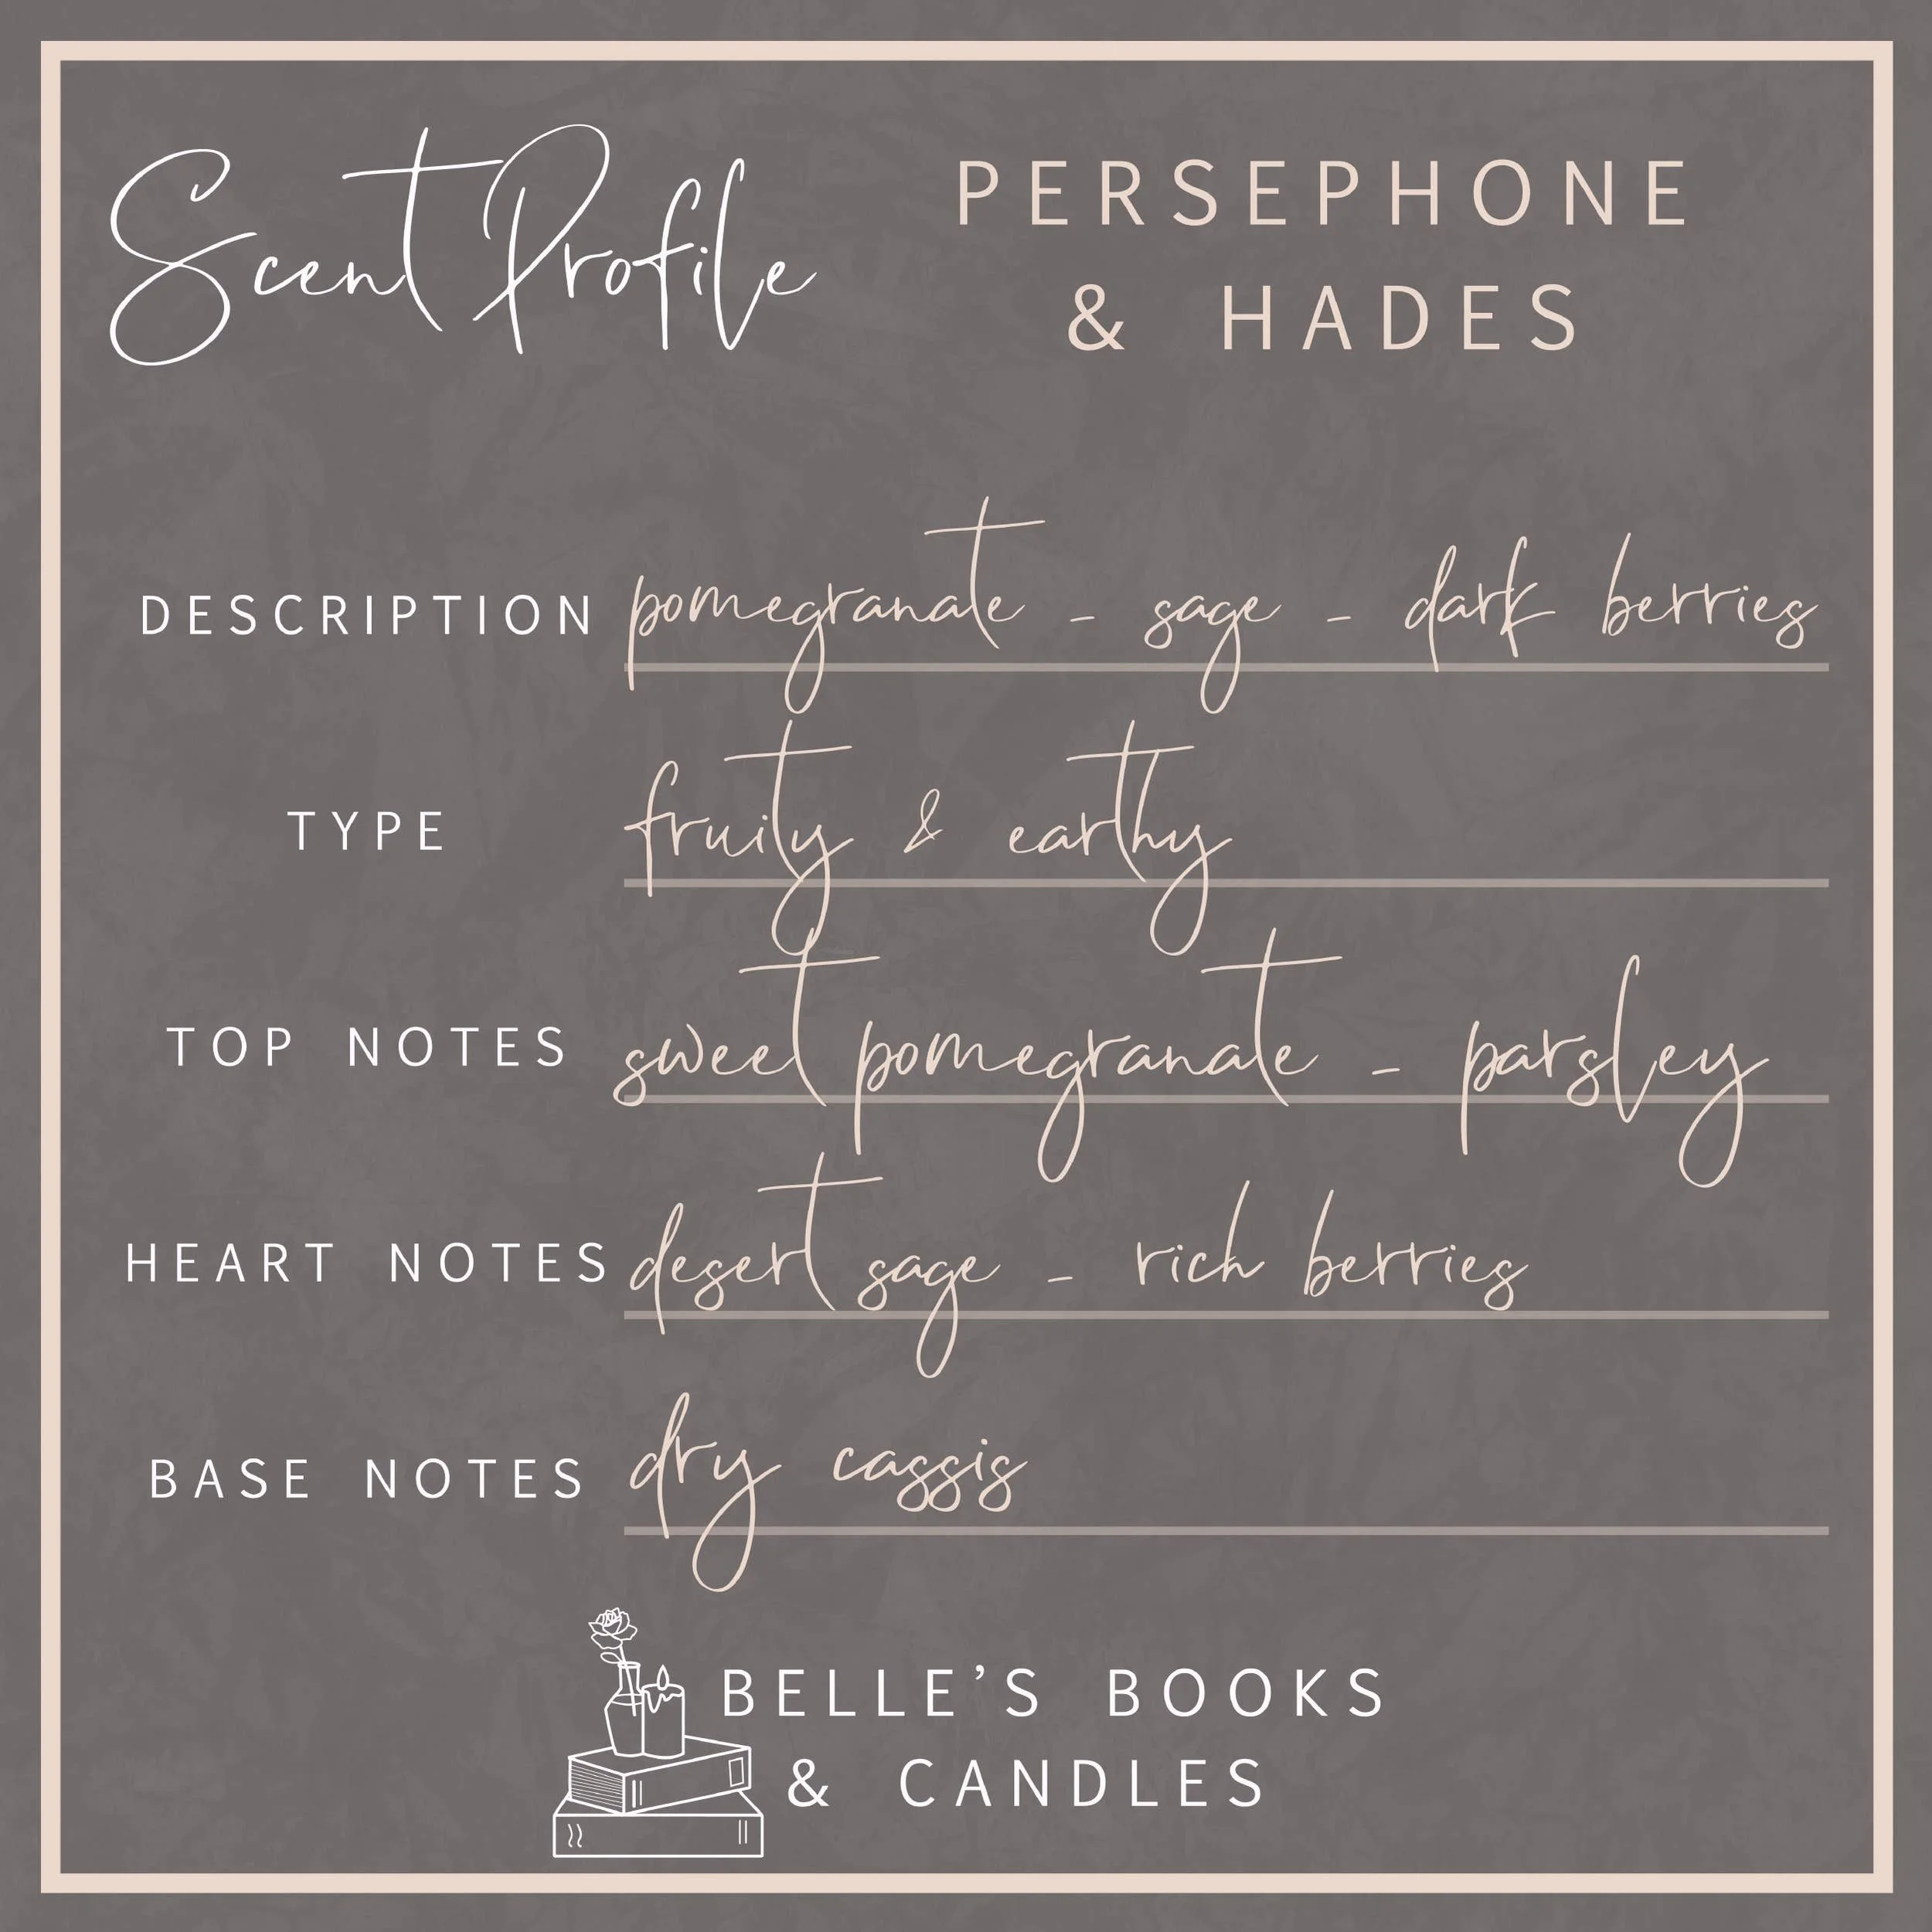 Scent Profile
PERSEPHONE
& HADES
DESCRIPTION pomegranate - sage - dark berries
TYPE fruity & earthy
TOP NOTES sweet pomegranate - parsley
HEART NOTES desert sage - rich berries
BASE NOTES dry cassis
BELLE'S BOOKS
& CANDLES